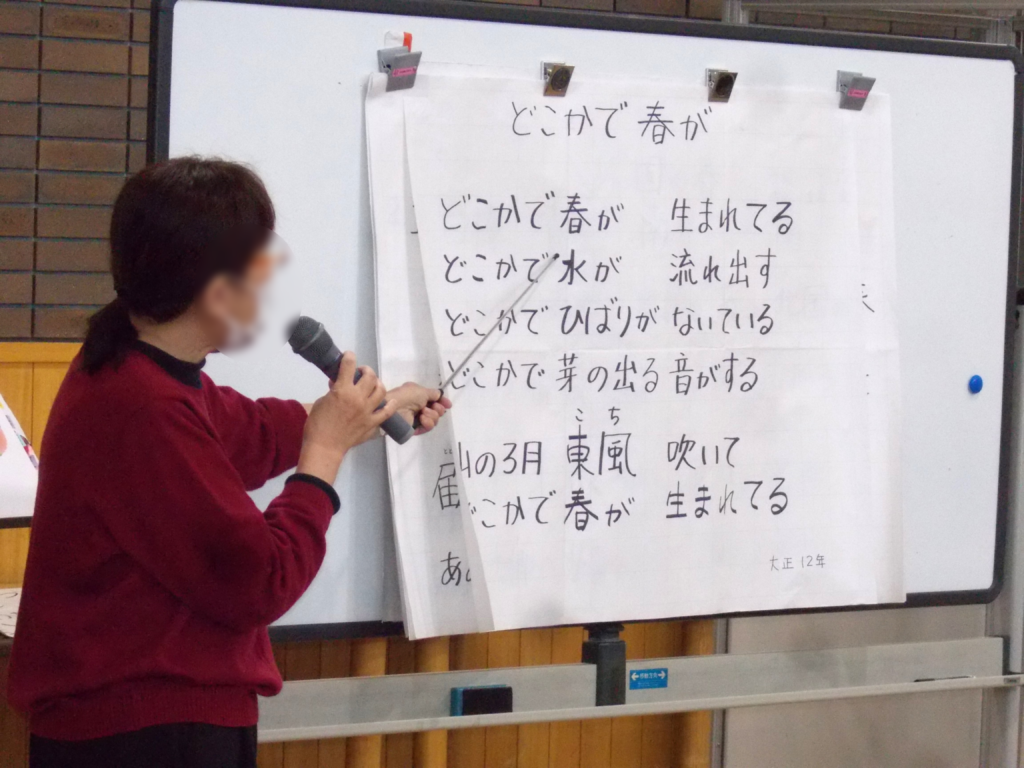 どこかで 春が
どこかで 春が 生まれてる
どこかで 水が 流れ出す
どこかで ひばりが ないている
どこかで 芽の出る 音がする
こち
山の3月 東風 吹いて
どこかで 春が 生まれてる
大正 12年